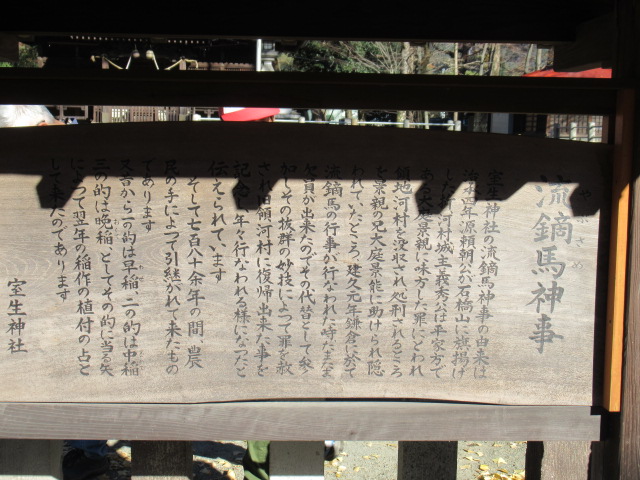 流鏑馬神事
やぶさめ
室生神社の流鏑馬神事の由来は
治承四年源頼朝公が石橋山に旗揚げ
した時河村城主義秀公は平家方で
ある大庭景親に味方した罪にとわれ
領地河村を没収され処刑されるところ
を景親の兄大庭景能に助けられ隠
われていたところ、建久元年鎌倉に於て
流鏑馬の行事が行なわれた時たまたま
欠員が出来たのでその代替として参
加しその抜群の妙技によって罪を赦
され旧領河村に復帰出来た事を
記念し年々行なわれる様になったと
伝えられています
そして七百八十余年の間、農
民の手によって引継がれて来たもの
であります
又昔から一の的は早稲、二の的は中稲
三の的は晩稲、としてその的に当る矢
によって翌年の稲作の植付の占と
して来たのであります
室生神社